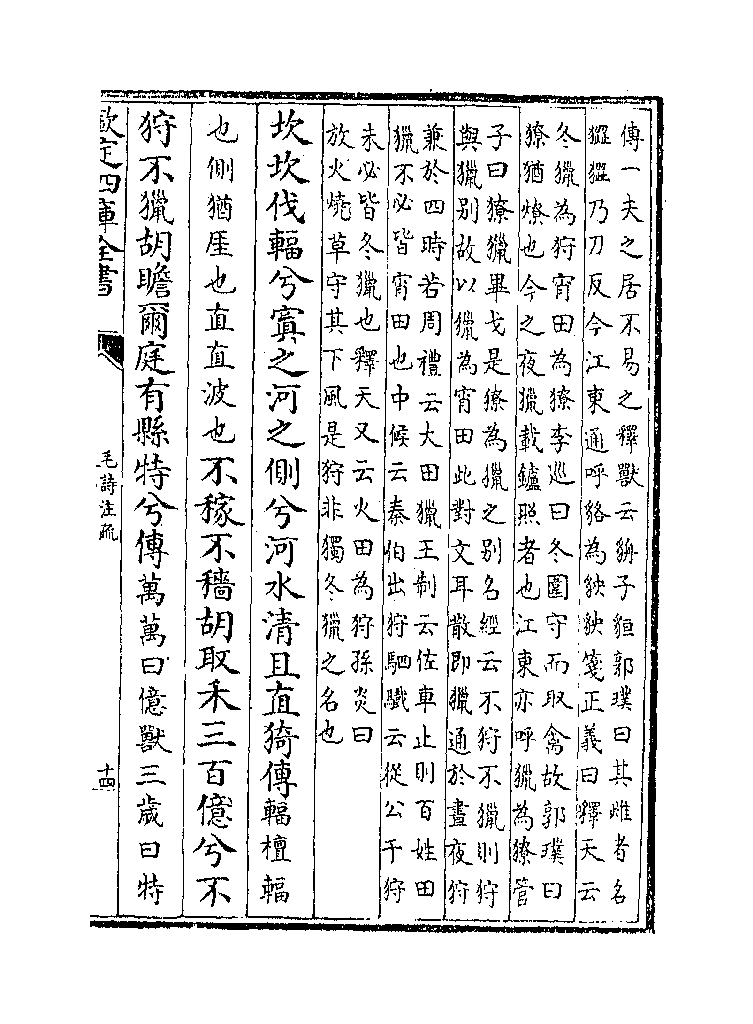 傳一夫之居不易之釋獸云貈子貆郭璞曰其雌者名
䝏䝏乃刀反今江東通呼貉為𧳅𧳅箋正義曰釋天云
冬獵為狩宵田為獠李巡曰冬圍守而取禽故郭璞曰
獠猶燎也今之夜獵載鑪照者也江東亦呼獵為獠管
子曰獠獵畢弋是獠為獵之别名經云不狩不獵則狩
與獵别故以獵為宵田此對文耳散即獵通於晝夜狩
兼於四時若周禮云大田獵王制云佐車止則百姓田
獵不必皆宵田也中候云秦伯出狩駟驖云從公于狩
未必皆冬獵也釋天又云火田為狩孫炎曰
放火燒草守其下風是狩非獨冬獵之名也
坎坎伐輻兮寘之河之側兮河水清且直猗傳輻檀輻
也側猶厓也直直波也不稼不穡胡取禾三百億兮不
狩不獵胡瞻爾庭有縣特兮傳萬萬曰億獸三歲曰特
欽定四庫全書
毛詩注疏
十四